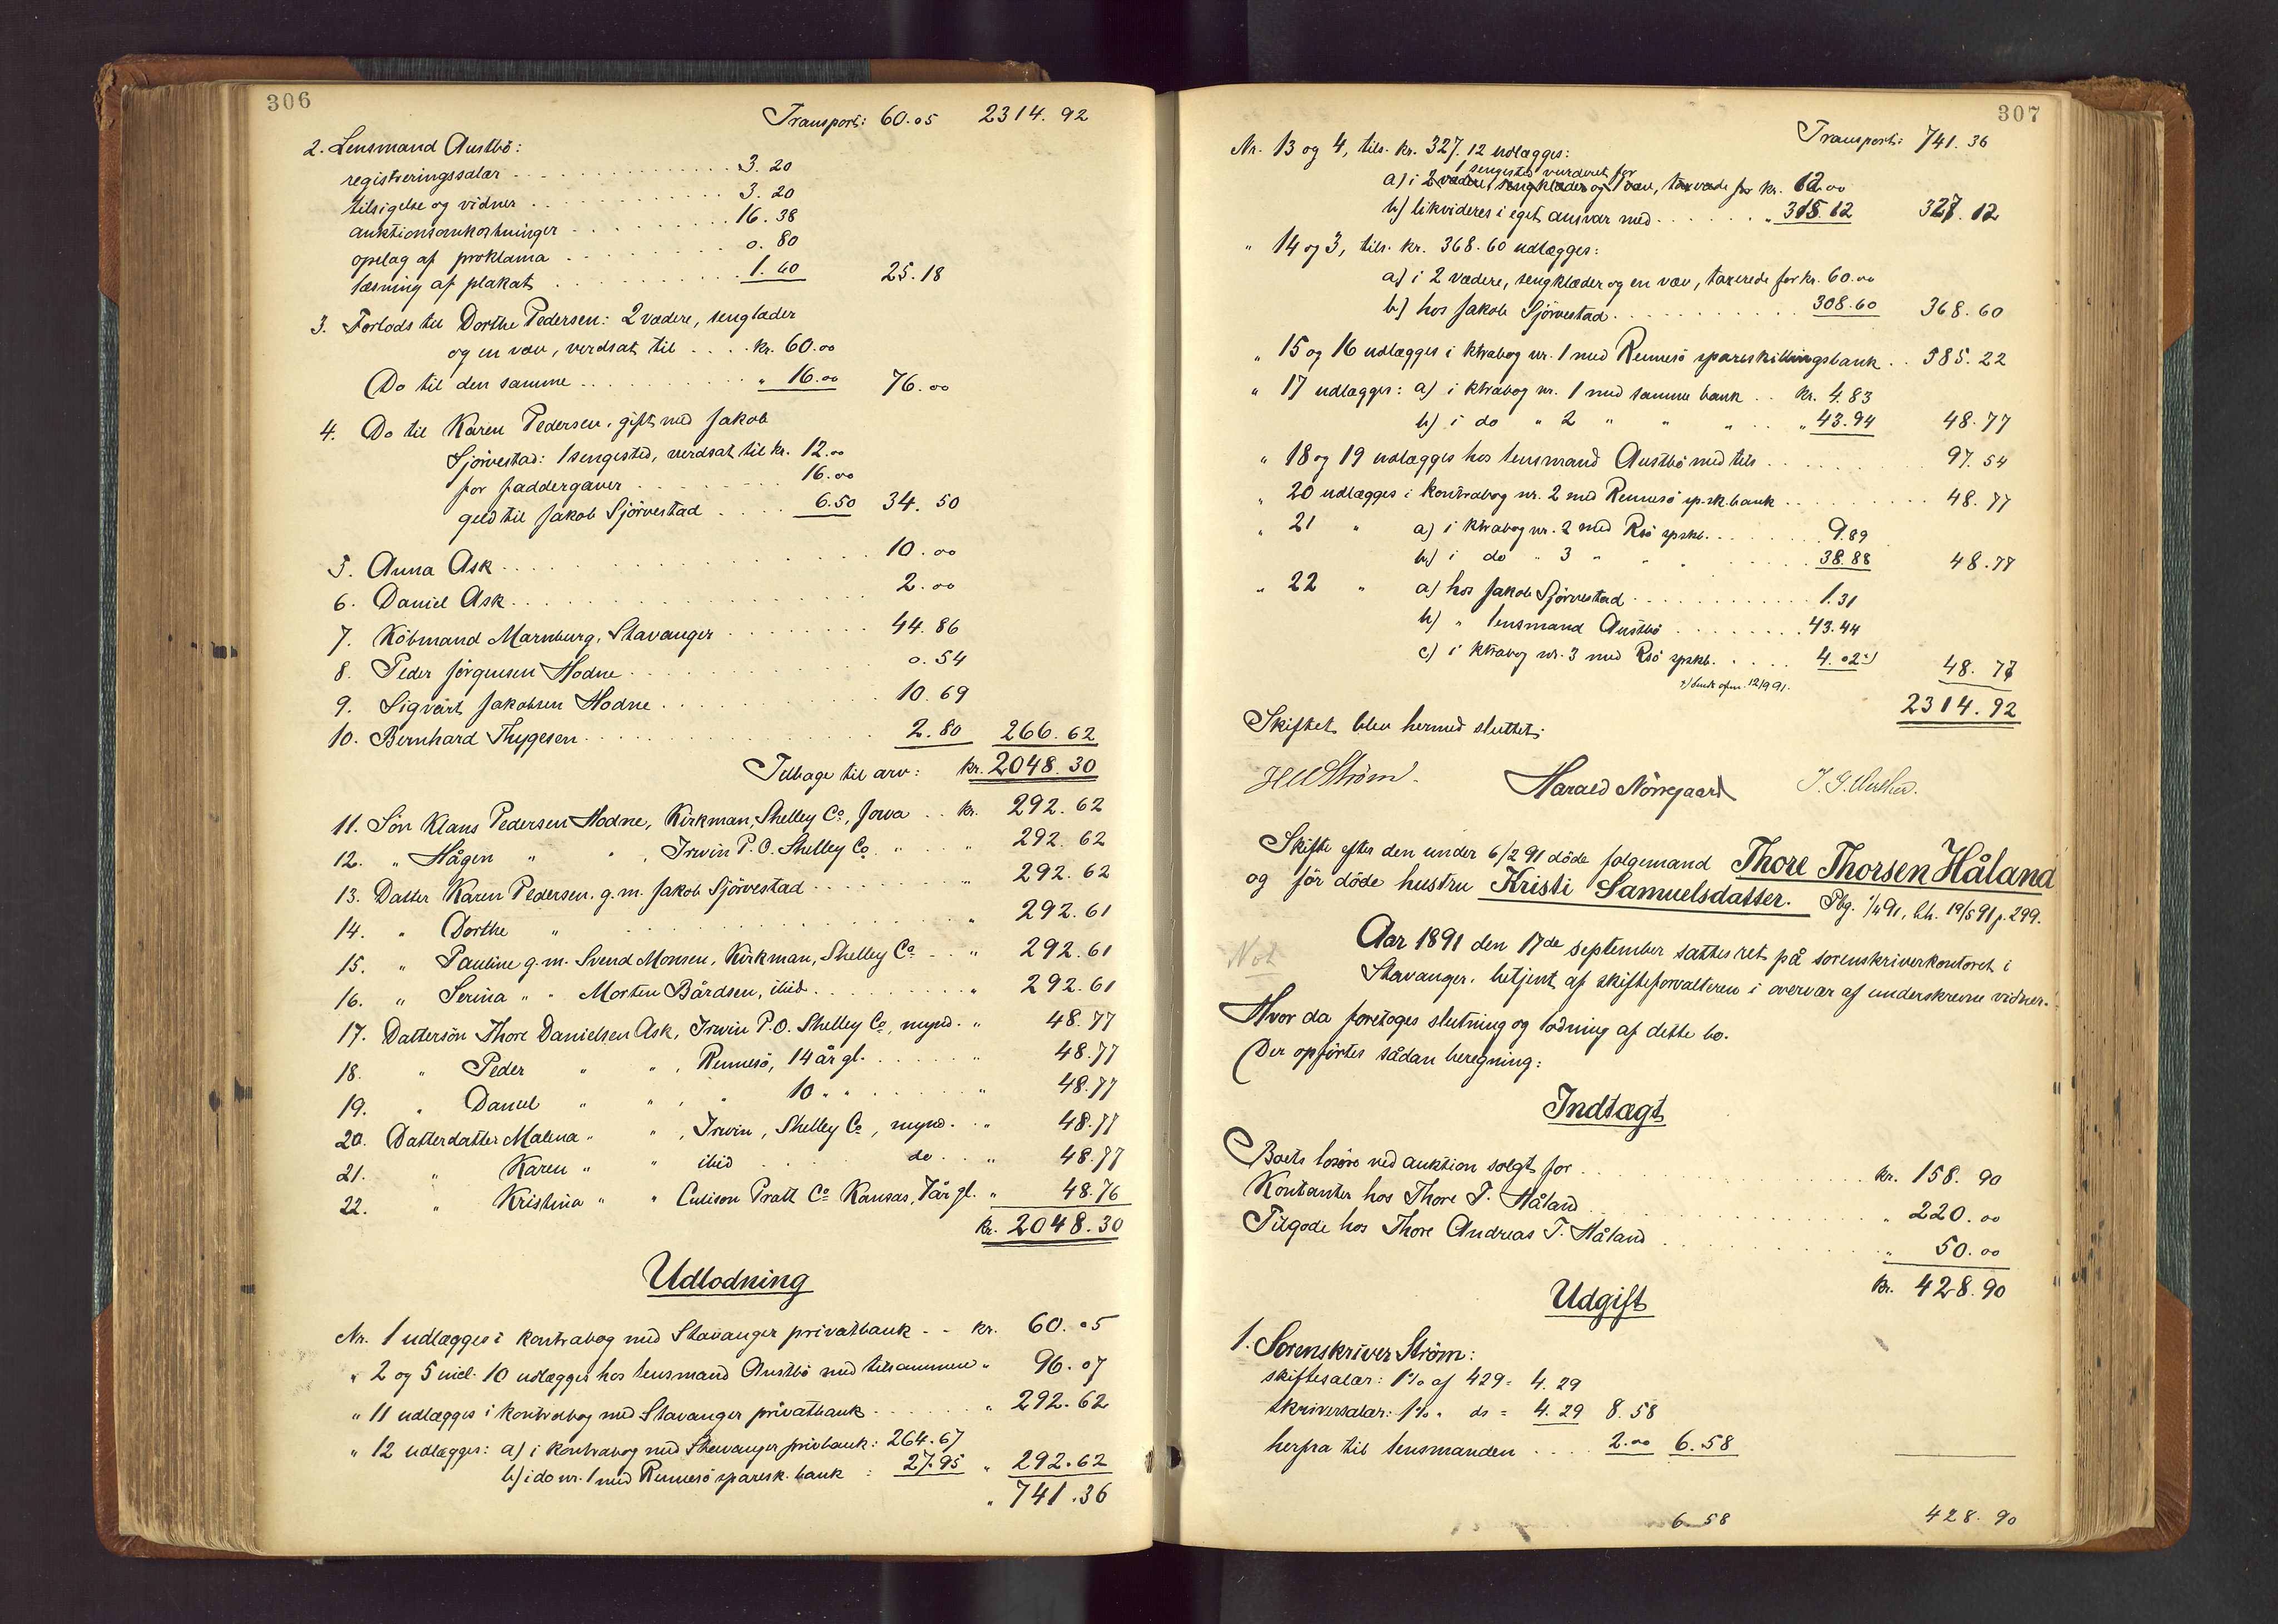 306
Transport: 60.05 2314.92
2. Lensmand Austbö:
registreringssalær 3.20
tilsigelse og vidner 3.20
auktionsomkostninger 16.38
opslag af proklama 0.80
læsning af plakat 1.60 25.18
3. Forlods til Dorthe Pedersen: 2 vædere, senglæder
og en væv, verdsat til kr. 60.00
Do til den samme " 16.00 76.00
4. Do til Karen Pedersen, gift med Jakob
Sjörvestad: 1 sengested, verdsat til kr. 12.00
for faddergaver 16.00
geld til Jakob Sjörvestad 6.50 34.50
5. Anna Ask 10.00
6. Daniel Ask 2.00
7. Köbmand Marnburg, Stavanger 44.86
8. Peder Jörgensen Hodne 0.54
9. Sigvart Jakobsen Hodne 10.69
10. Bernhard Thygesen 2.80 266.62
Tilbage til arv: kr. 2048.30
11. Sön Klaus Pedersen Hodne, Kirkman, Shelley Co, Jowa kr. 292.62
12. " Hågen " " , Irwin P.O. Shelley Co " " 292.62
13. Datter Karen Pedersen, g.m. Jakob Sjörvestad " 292.62
14. " Dorthe " " 292.61
15. " Pauline g.m. Svend Monsen, Kirkman, Shelley Co " 292.61
16. " Serina " " Morten Bårdsen, ibid " 292.61
17. Dattersön Thore Danielsen Ask, Irwin P.O. Shelley Co, mynd. " 48.77
18. " Peder " " , Rennesö, 14 år gl. " 48.77
19. " Daniel " " , " 10 " " " 48.77
20. Datterdatter Malena " " , Irwin, Shelley Co, mynd. " 48.77
21. " Karen " " ibid do " 48.77
22. " Kristina " " Culison Pratt Co Kansas, 7 år gl. " 48.76
kr. 2048.30
Udlodning
Nr. 1 udlægges i kontrabog med Stavanger privatbank kr. 60.05
" 2 og 5 incl. 10 udlægges hos lensmand Austbö med tilsammen " 96.07
" 11 udlægges i kontrabog med Stavanger privatbank " 292.62
" 12 udlægges: a) i kontrabog med Stavanger privbank: 264.67
b) i do nr. 1 med Rennesö sparesk. bank : 27.95 " 292.62
" 741.36
307
Transport: 741.36
Nr. 13 og 4, tils. kr. 327.12 udlægges:
1 sengested vurderet for
a) i 2 vædere, sengklæder og 1 væv, taxerede for kr. 12.00
b) likvideres i eget ansvar med " 315.12 327.12
" 14 og 3, tils. kr. 368.60 udlægges:
a) i 2 vædere, sengklæder og en væv, taxerede for kr. 60.00
b) hos Jakob Sjörvestad 308.60 368.60
" 15 og 16 udlægges i ktrabog nr. 1 med Rennesö spareskillingsbank 585.22
" 17 udlægges: a) i ktrabog nr. 1 med samme bank kr. 4.83
b) i do " 2 " " " " 43.94 48.77
" 18 og 19 udlægges hos lensmand Austbö med tils 97.54
" 20 udlægges i kontrabog nr. 2 med Rennesö sp.sk.bank 48.77
" 21 " a) i ktrabog nr. 2 med Rsö spskb. 9.89
b) i do " 3 " " " 38.88 48.77
" 22 " a) hos Jakob Sjörvestad 1.31
b) " lensmand Austbö 43.44
c) i ktrabog nr. 3 med Rsö spskb. 4.02 48.77
2314.92
Skiftet blev hermed sluttet.
Harald Nörregaard
Skifte efter den under 6/2 91 döde folgemand Thore Thorsen Håland
og för döde hustru Kristi Samuelsdatter. Pbg. 1/4 91, bh. 19/5 91 p. 299.
Not
Aar 1891 den 17de september sattes ret på sorenskriverkontoret i
Stavanger, betjent af skifteforvalteren i overvær af underskrevne vidner.
Hvor da foretoges slutning og lodning af dette bo.
Der opförtes sådan beregning:
Indtægt
Boets lösöre ved auktion solgt for kr. 158.90
Kontanter hos Thore T. Håland " 220.00
Tilgode hos Thore Andreas T. Håland " 50.00
kr. 428.90
Udgift
1. Sorenskriver Ström:
skiftesalær: 1% af 429 = 4.29
skriversalær: 1% " do = 4.29 8.58
herfra til lensmanden 2.00 6.58
6.58 428.90